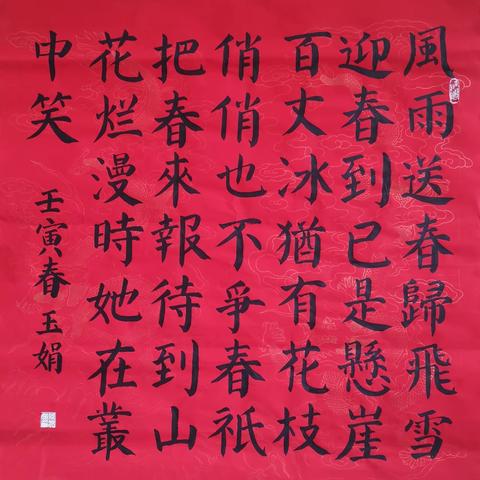 風雨送春歸飛雪
迎春到已是懸崖
百丈冰猶有花枝
俏俏也不爭春祇
把春來報待到山
花烂漫時她在叢
中笑
壬寅春玉娟